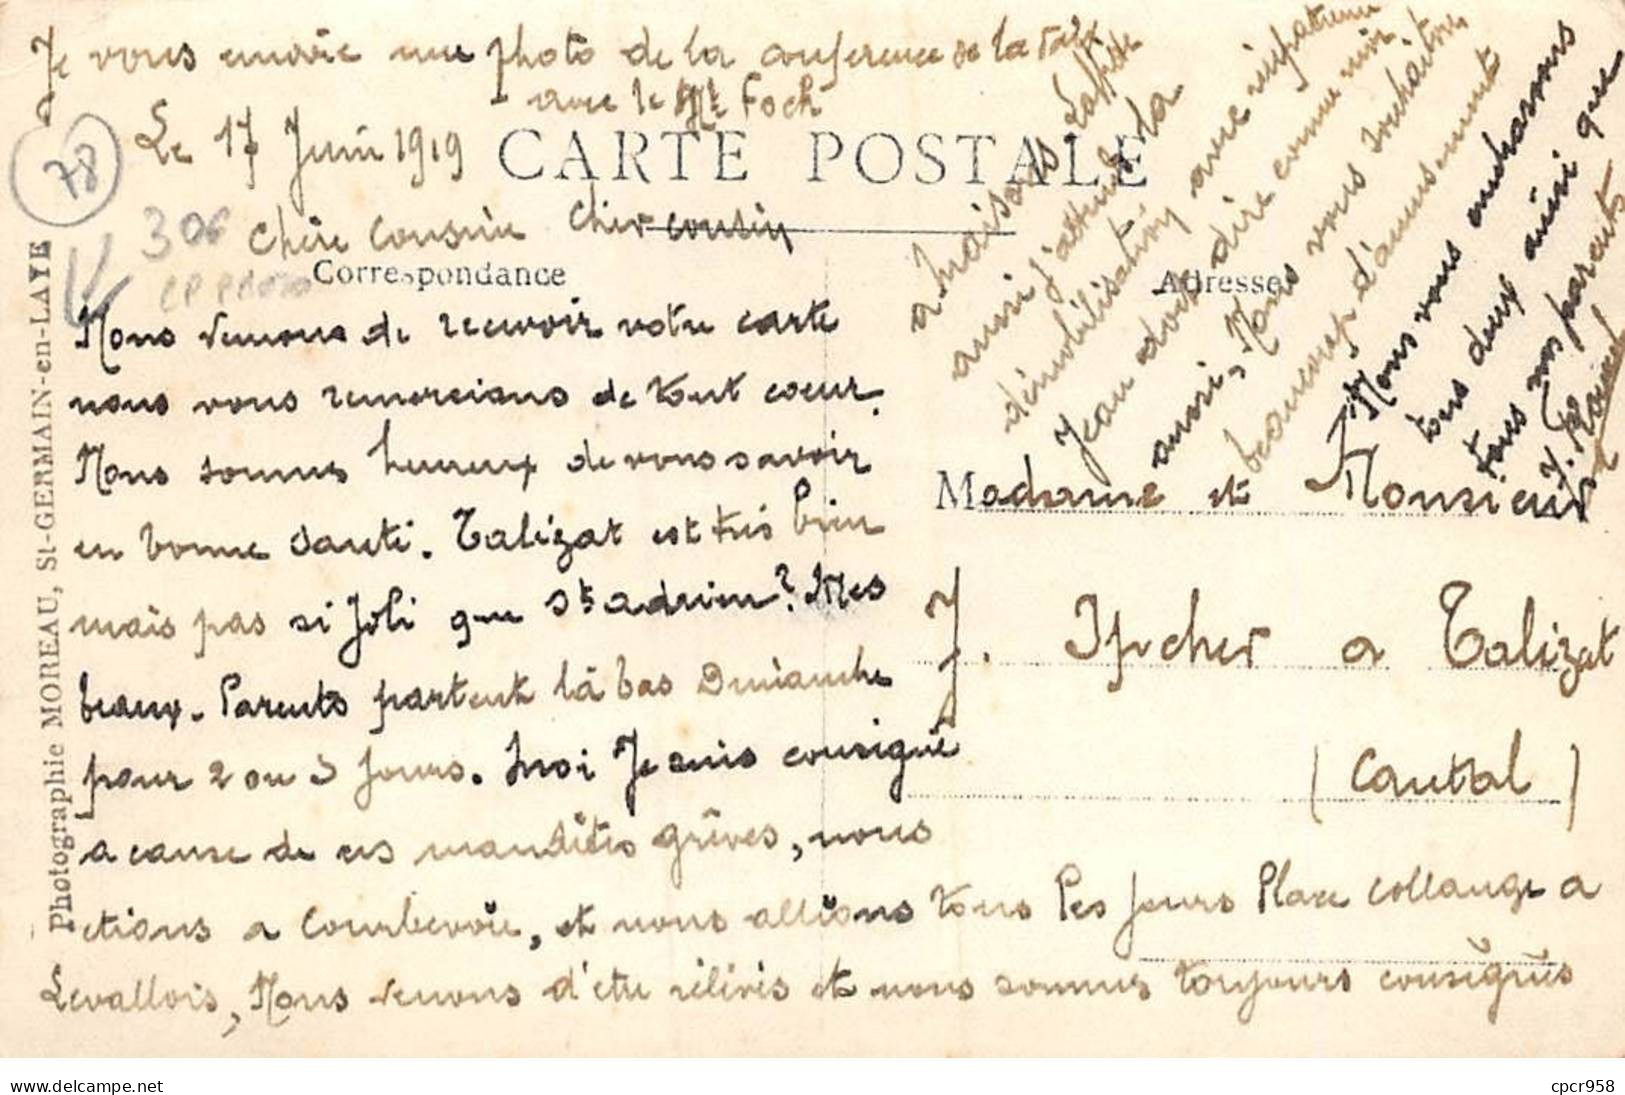 Je vous envoie une photo de la conference de la Paix
avec le Mal Foch
Le 17 Juin 1919
CARTE POSTALE
78
306
CP
Chère Cousine Cher cousin
Correspondance
Adresse
Nous venons de recevoir votre carte
nous vous remercions de tout coeur.
Nous sommes heureux de vous savoir
en bonne santé. Talizat est très bien
mais pas si Joli que St adrien? Mes
beaux-Parents partent là bas Dimanche
pour 2 ou 3 jours. Moi Je suis consigné
a cause de ces maudites grèves, nous
etions a Courbevoie, et nous allions tous les jours Place Collange a
Levallois, Nous venons d'etre relivés et nous sommes toujours consignés
a Maisons Laffitte
aussi j'attends la
démobilisation avec impatience
Jean doit dire comme moi
aussi, Nous vous souhaitons
beaucoup d'amusement
Nous vous embrassons
tous deux ainsi que
tous nos parents
Madame et Monsieur
J. Ipcher a Talizat
(Cantal)
Photographie MOREAU, St-GERMAIN-en-LAYE
www.delcampe.net
cpcr958